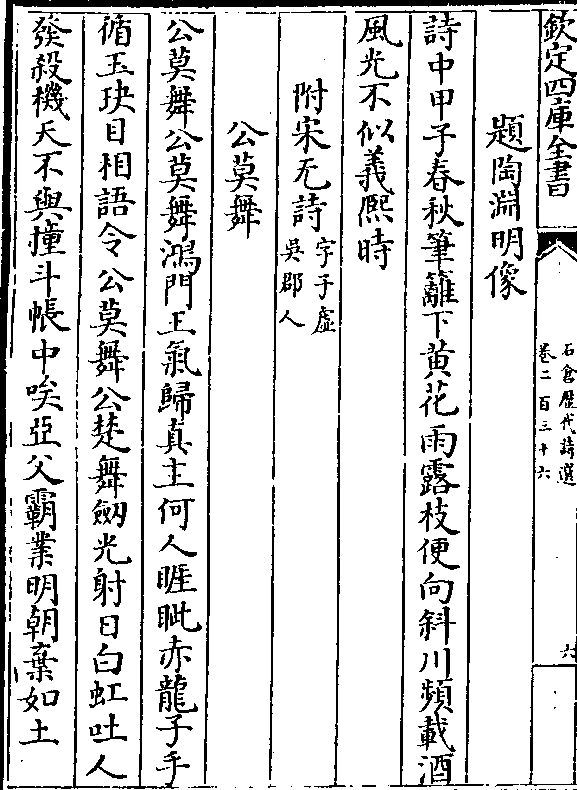 欽定四庫全書
石倉歷代詩選
卷二百三十六
六
題陶淵明像
詩中甲子春秋筆籬下黄花雨露枝便向斜川頻載酒
風光不似義熙時
附宋无詩
字子虛
吳郡人
公莫舞
公莫舞公莫舞鴻門王氣歸真主何人睚眦赤龍子手
循玉玦目相語令公莫舞公楚舞劔光射日白虹吐人
發殺機天不與撞斗帳中唉亞父霸業明朝棄如土